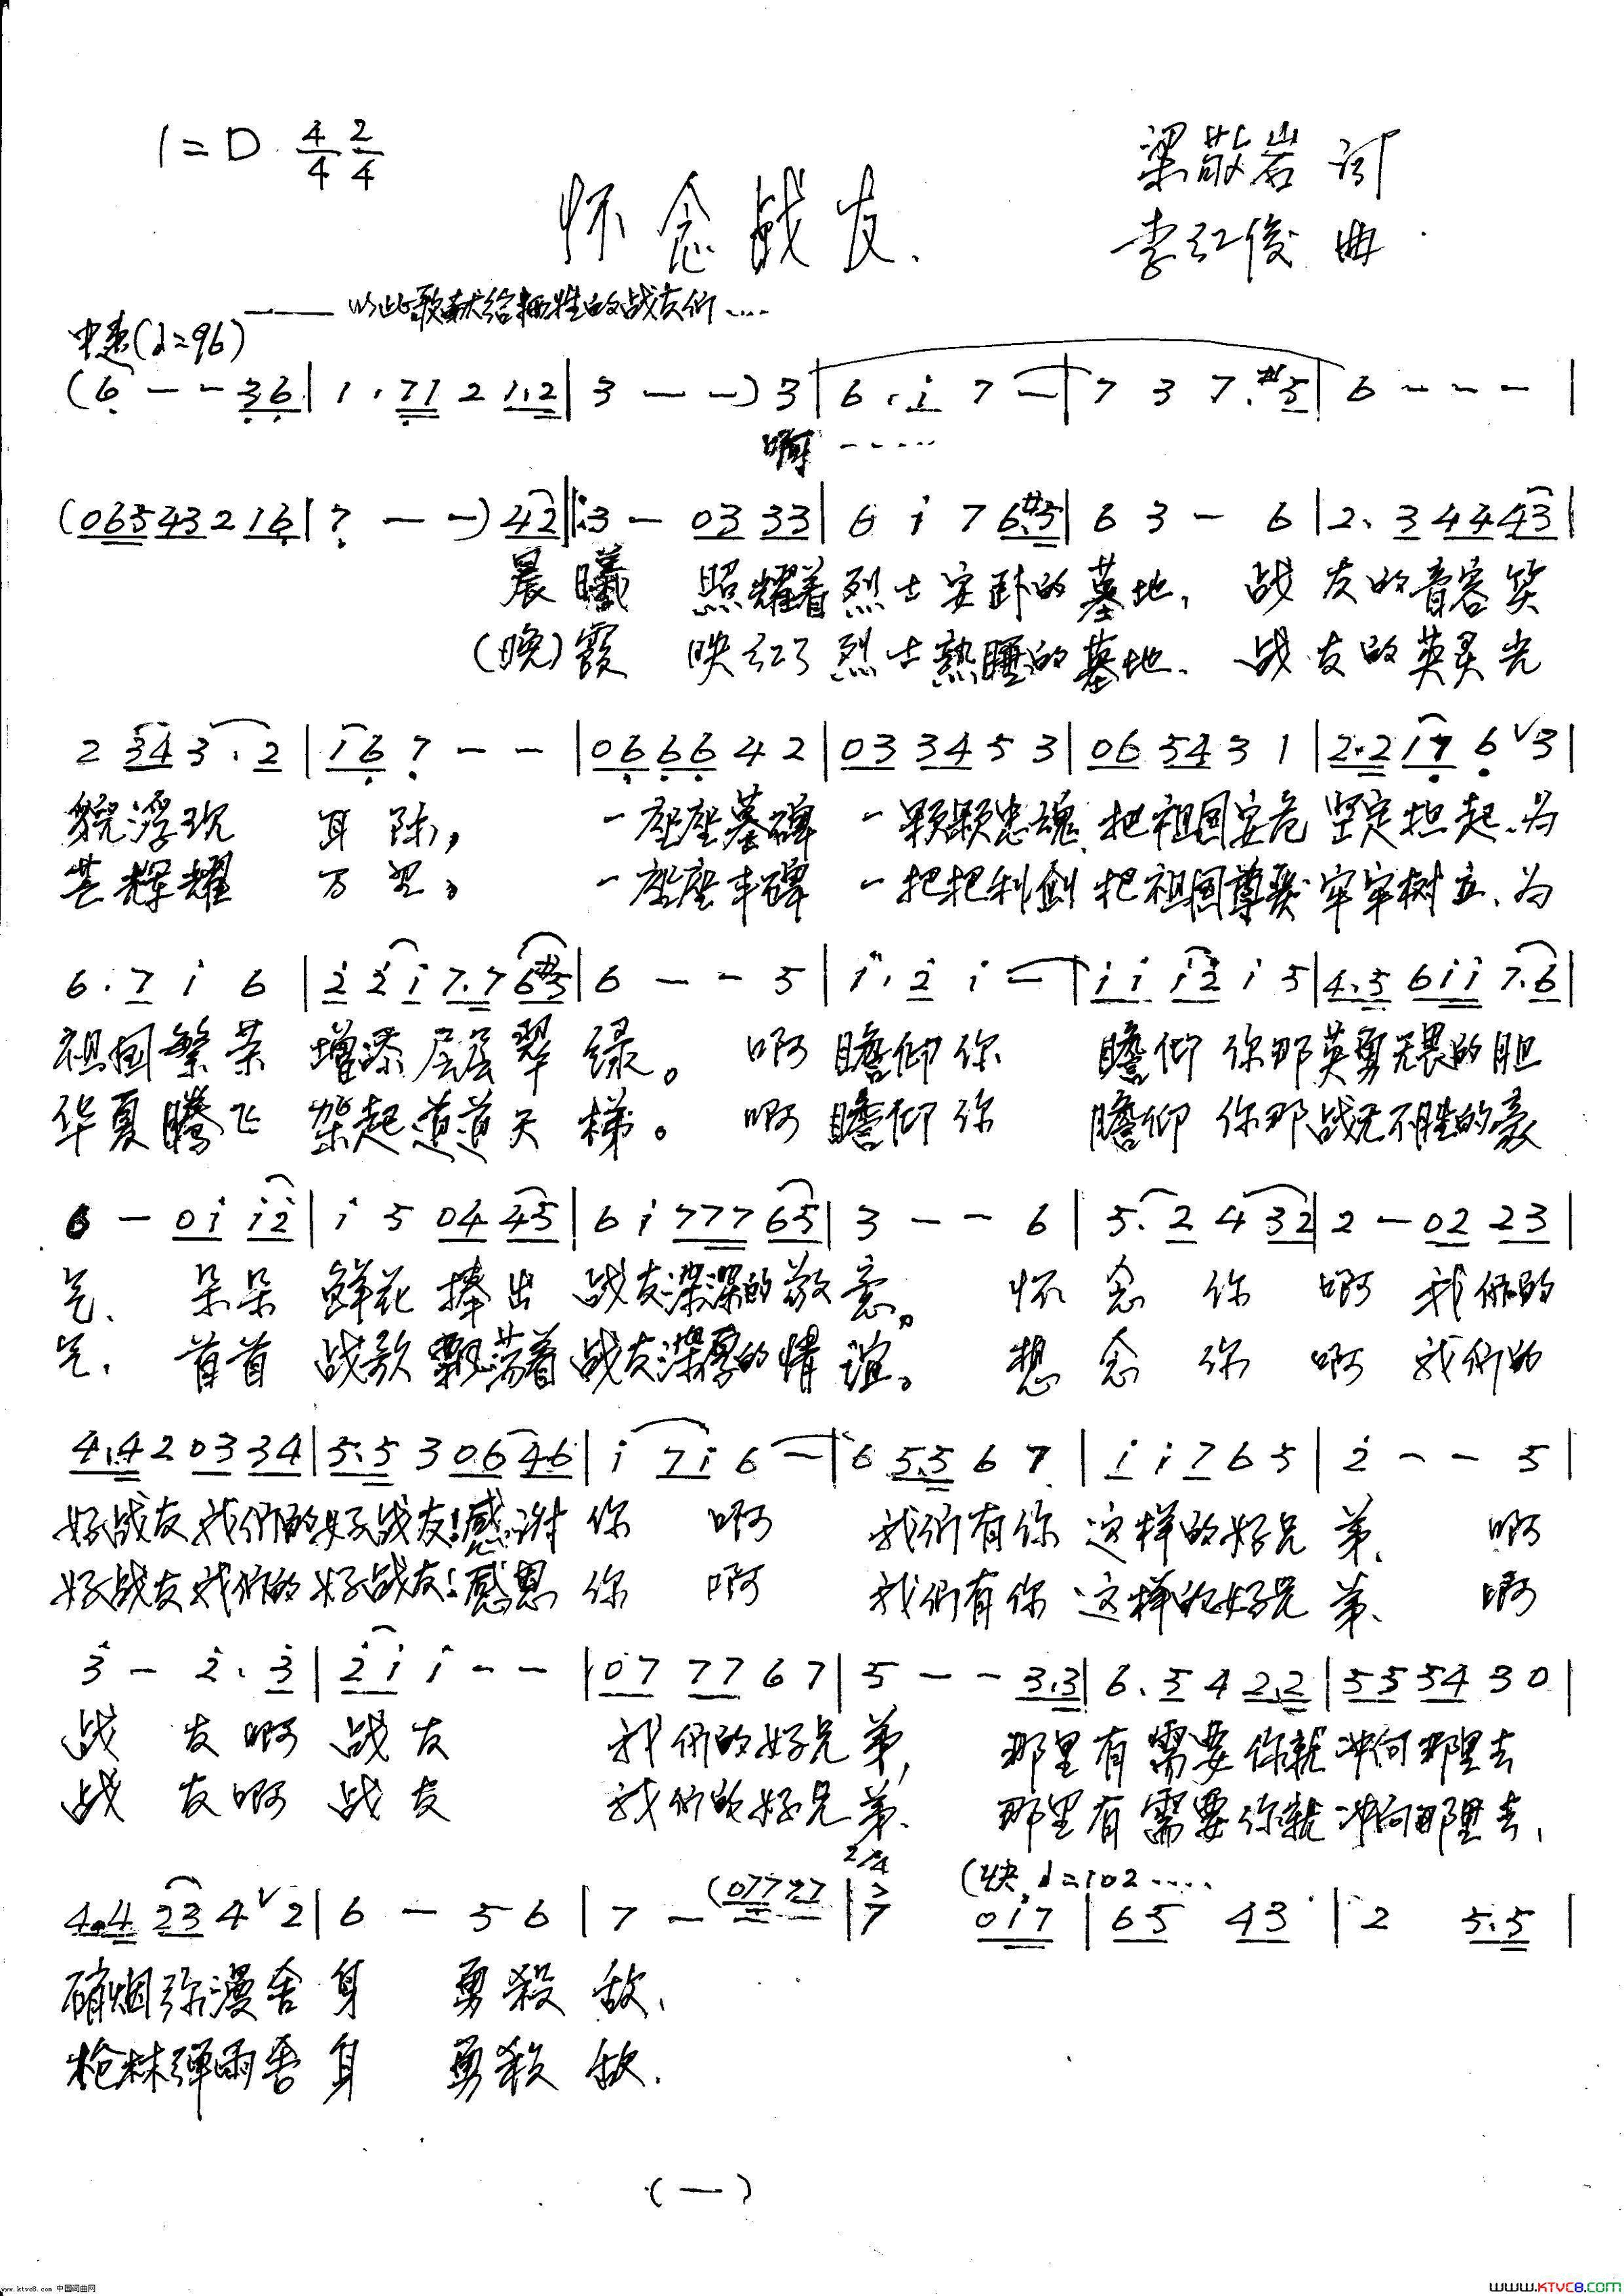 1=D 4/4 2/4
梁敬岩 词
怀念战友
李红俊 曲
——以此歌献给牺牲的战友们....
中速(♩=96)
(6̣ - - 3̣6̣ | 1 . 7̣1 2 1.2 | 3 - -) 3 | 6 . i 7 - | 7 3 7 . #5 | 6 - - - |
啊 .....
(065 43 2 16̣ | 7̣ - -) 42 ‖: 3 - 03 33 | 6 i 7 6.#5 | 6 3 - 6 | 2 . 3 44 43 |
晨曦 照耀着烈士安卧的墓地, 战友的音容笑
(晚)霞 映红了烈士熟睡的墓地. 战友的英灵光
2 34 3 . 2 | 16̣ 7̣ - - | 06̣ 6̣6̣ 4 2 | 03 34 5 3 | 06 54 3 1 | 2.2 17̣ 6̣ ∨ 3 |
貌浮现 耳际, 一座座墓碑 一颗颗忠魂 把祖国安危 坚定担起、为
芒辉耀 万里, 一座座丰碑 一把把利剑 把祖国尊严 牢牢树立、为
6 . 7 i 6 | 2̇ 2̇i 7.7 6#5 | 6 - - 5 | i . 2̇ i - | i i i2̇ i 5 | 4.5 6ii 7.6 |
祖国繁荣 增添层层翠绿。 啊 瞻仰你 瞻仰你那英勇无畏的胆
华夏腾飞 架起道道天梯。 啊 瞻仰你 瞻仰你那战无不胜的豪
6 - 0i i2̇ | i 5 04 45 | 6 i 777 65 | 3 - - 6 | 5 . 2 4 32 | 2 - 02 23 |
气、 朵朵鲜花捧出战友深深的敬意。 怀念你 啊 我们的
气、 首首战歌飘荡着战友深厚的情谊。 想念你 啊 我们的
4.4 2 03 34 | 5.5 3 06 46 | i 7i 6 - | 6 5.5 6 7 | i i 7 6 5 | 2̇ - - 5 |
好战友我们的好战友!感谢你 啊 我们有你这样的好兄弟、 啊
好战友我们的好战友!感恩你 啊 我们有你这样的好兄弟、 啊
3̇ - 2̇ . 3̇ | 2̇i i - - | 07 77 6 7 | 5 - - 3.3 | 6 . 5 4 2.2 | 55 54 3 0 |
战友啊战友 我们的好兄弟, 那里有需要你就冲向那里去
战友啊战友 我们的好兄弟、 那里有需要你就冲向那里去,
2/4 (快 ♩=102.....
4.4 23 4 ∨ 2 | 6 - 5 6 | 7 - (0777 7 | 7 0i7 | 65 43 | 2 5.5 |
硝烟弥漫舍身 勇殺敌、
枪林弹雨舍身 勇殺敌.
(一)
www.ktvc8.com 中国词曲网
WWW.KTVC8.COM